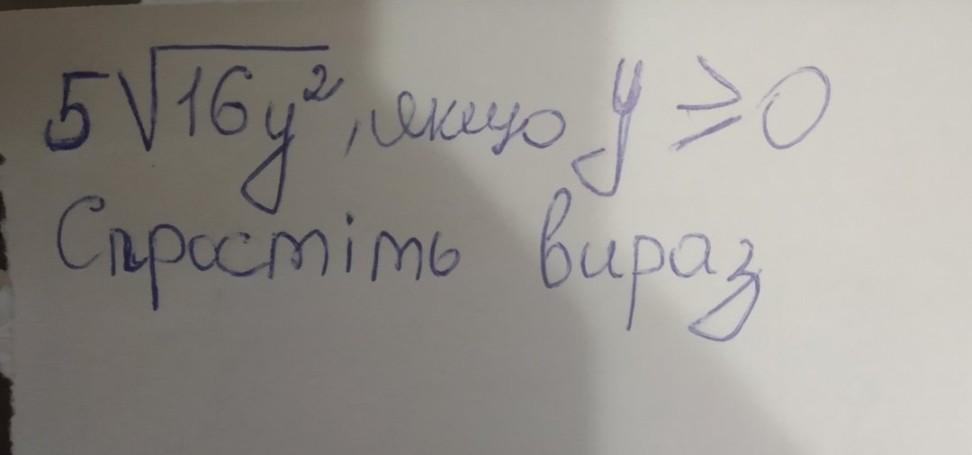 5√16y², якщо y ≥ 0
Спростіть вираз